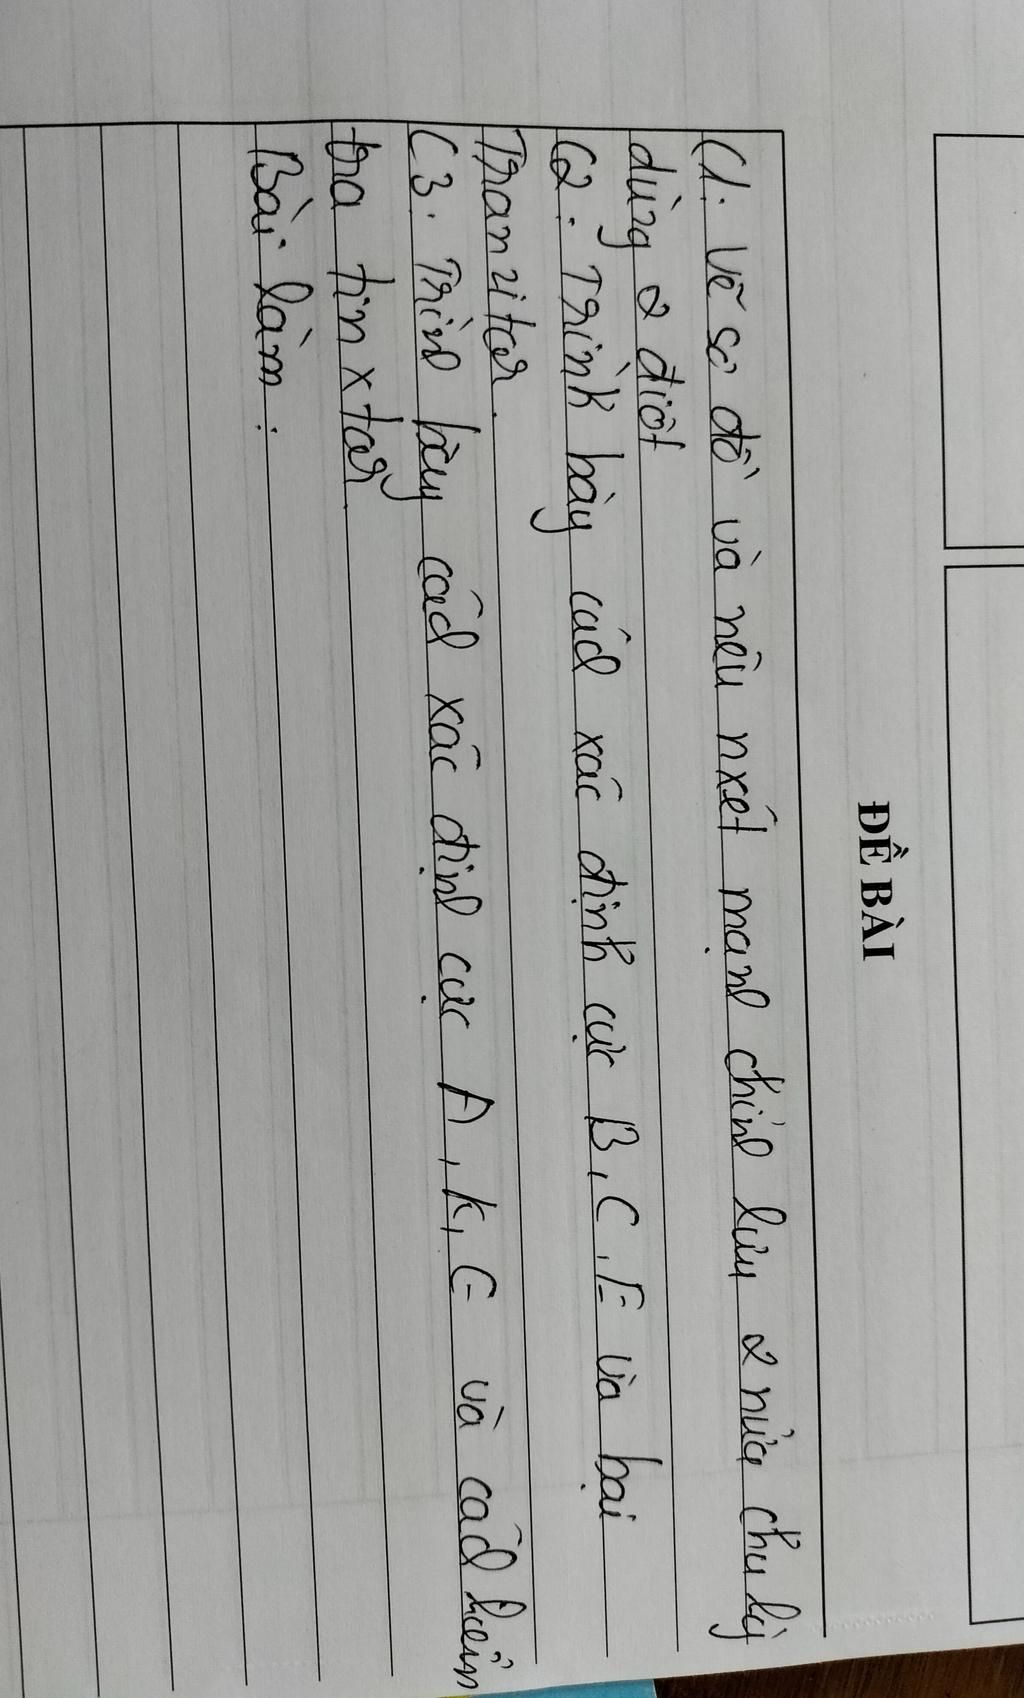 ĐỀ BÀI
C1. Vẽ sơ đồ và nêu nxét mạch chỉnh lưu 2 nửa chu kỳ
dùng 2 điôt
C2. Trình bày cách xác định cực B, C, E và loại
Tranzitor.
C3. Trình bày cách xác định cực A, K, G và cách kiểm
tra tirixtor
Bài làm: